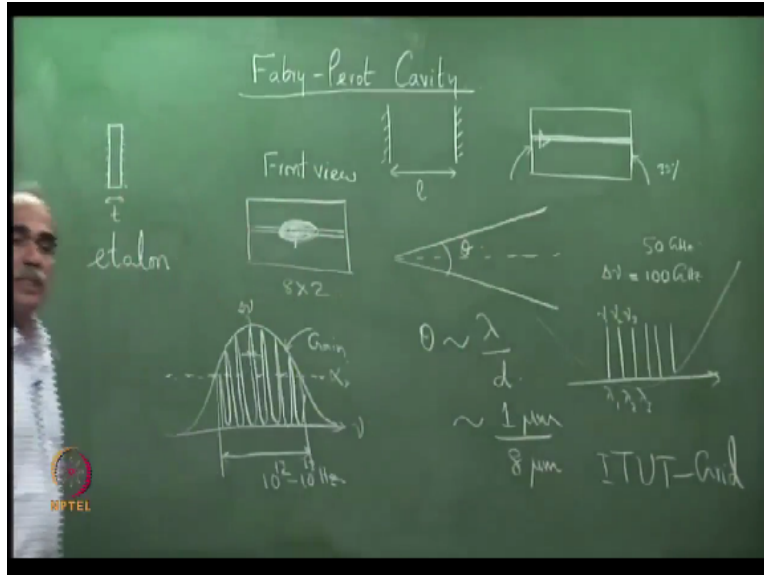 Fabry-Perot Cavity
t
etalon
Front view
8 x 2
l
θ
50 GHz
Δν = 100 GHz
Δν
Gain
ν
10^12 - 10^13 Hz
θ ~ λ/d
~ 1 μm / 8 μm
ν1 ν2 ν3
λ1 λ2 λ3
ITUT-Grid
NPTEL